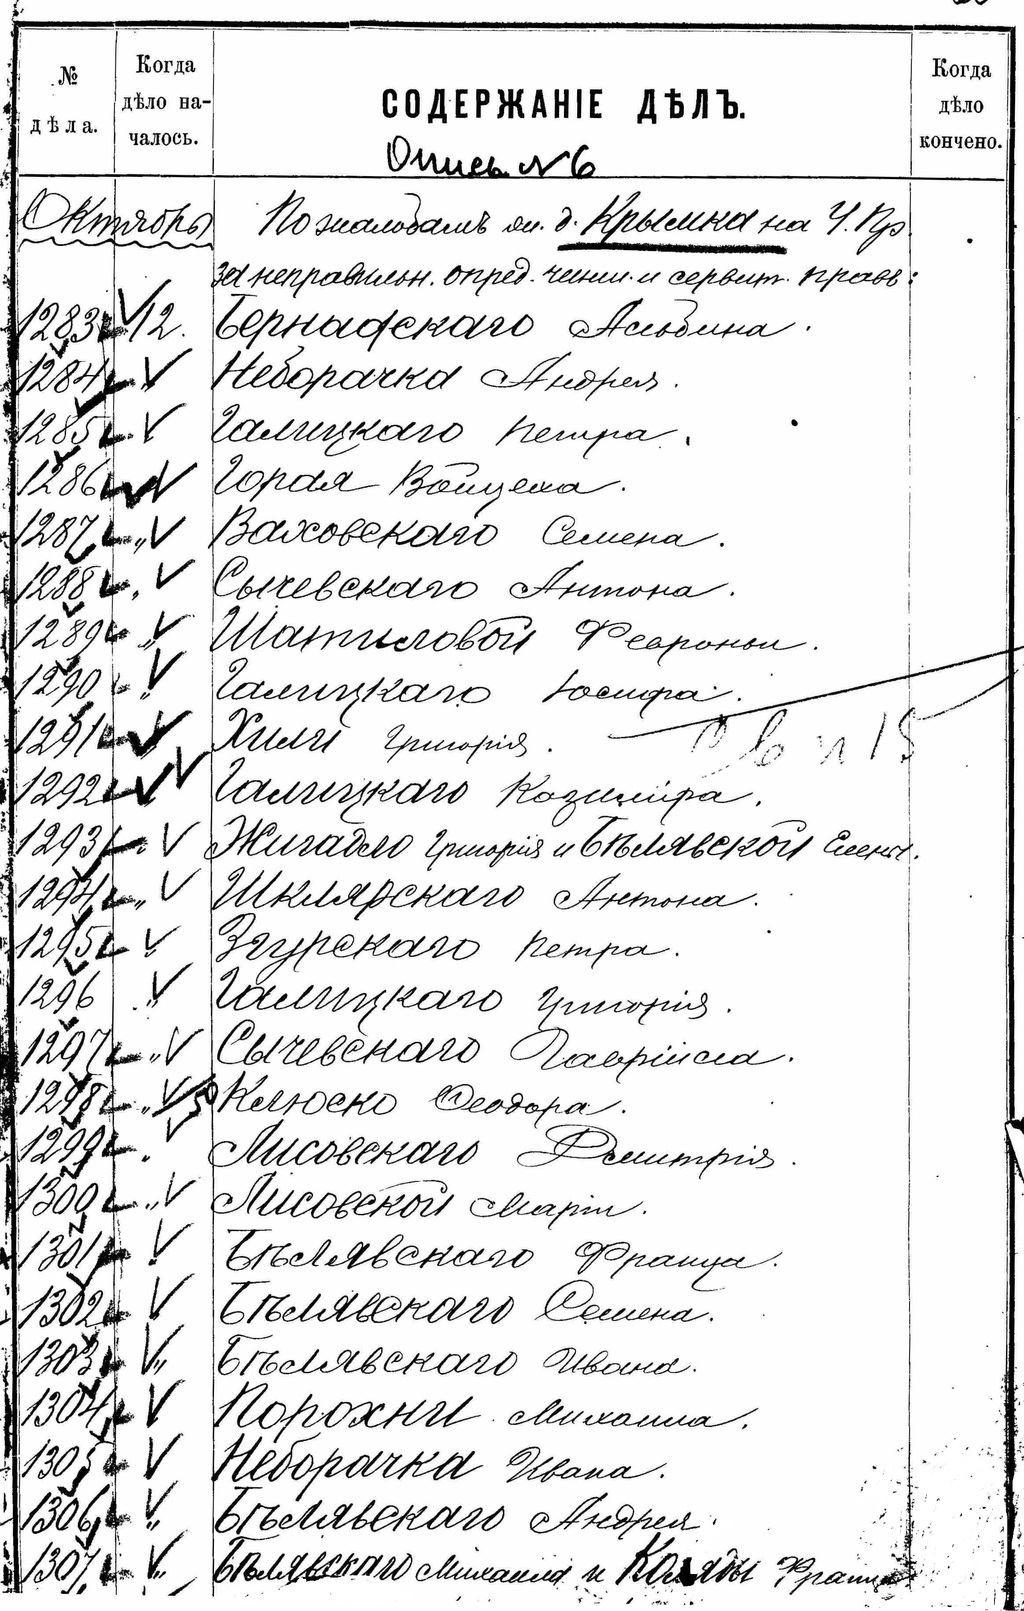 № дѣла.
Когда дѣло на-чалось.
СОДЕРЖАНІЕ ДѢЛЪ.
Когда дѣло кончено.
Опись №6
Октябрь По жалобамъ жи. д. Крымка на Ч. Пр.
за неправильн. опред. чинш. и сервит. правъ:
1283 12. Бернафскаго Альбина.
1284 Неборачка Андрея.
1285 Галицкаго Петра.
1286 Горая Войцеха.
1287 „ Ваховскаго Семена.
1288 „ Сычевскаго Антона.
1289 „ Шатиловой Февроньи.
1290 „ Галицкаго Іосифа.
1291 „ Хили Григорія.
1292 „ Галицкаго Казиміра.
1293 „ Жигадло Григорія и Бѣлявской Елены.
1294 „ Шклярскаго Антона.
1295 „ Згурскаго Петра.
1296 „ Галицкаго Григорія.
1297 „ Сычевскаго Гавріила.
1298 „ Клюско Ѳеодора.
1299 „ Лисовскаго Дмитрія.
1300 „ Лисовской Маріи.
1301 „ Бѣлявскаго Франца.
1302 „ Бѣлявскаго Семена.
1303 „ Бѣлявскаго Ивана.
1304 „ Порохни Михаила.
1305 „ Неборачка Ивана.
1306 „ Бѣлявскаго Андрея.
1307 „ Бѣлявскаго Михаила и Коляды Франца